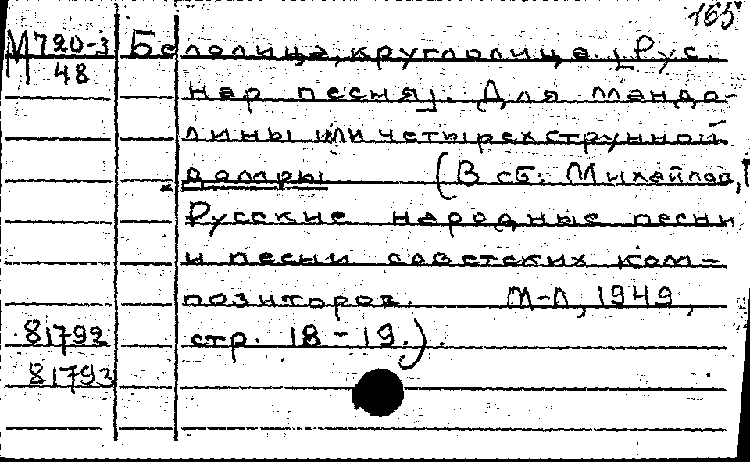 165
М 720-3 Белолица, круглолица. [Рус.
48
нар песня]. Для мандо-
лины или четырехструнной
домры (В сб. Михайлов,
Русские народные песни
и песни советских ком-
позиторов. М-Л, 1949,
81792 стр. 18-19.)
81793